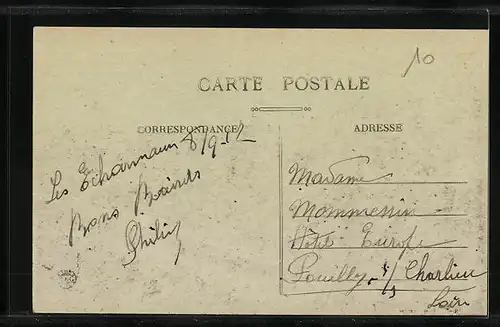 10
CARTE POSTALE
CORRESPONDANCE
ADRESSE
Les Echarmeaux 8/9-12
Bons Baisers
Madame
Mommessin
Hôtel Europe
Pouilly s/s Charlieu
Loire